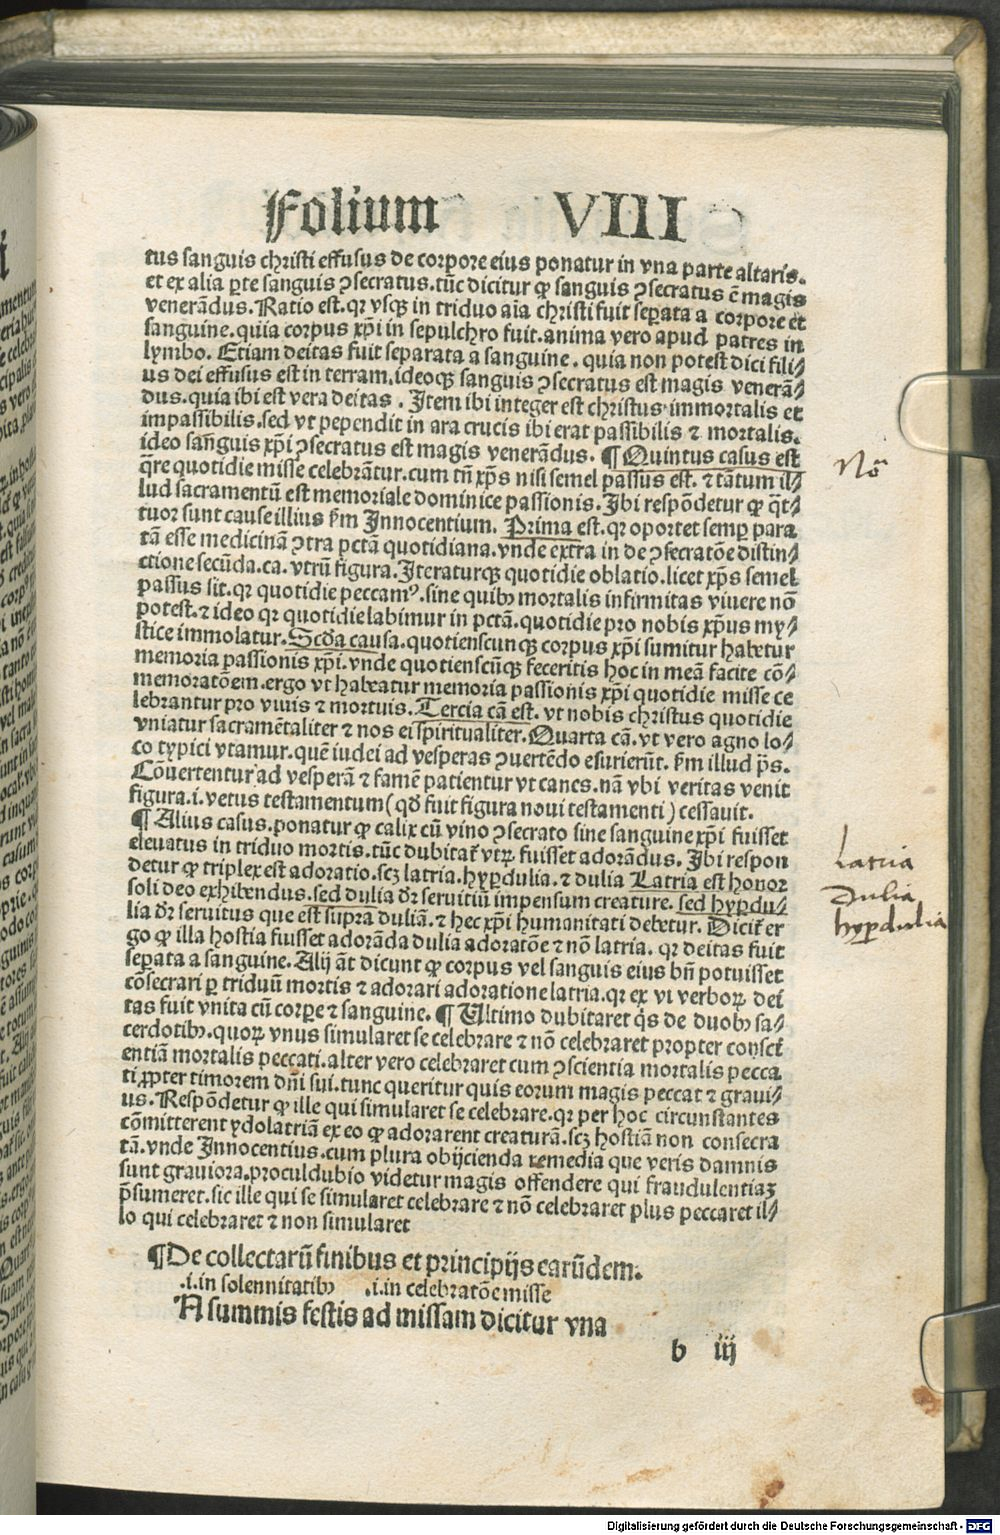 Folium VIII
tus sanguis christi effusus de corpore eius ponatur in vna parte altaris.
et ex alia ꝑte sanguis ꝯsecratus. tūc dicitur ꝙ sanguis ꝯsecratus ē magis
venerādus. Ratio est. qr vsqꝫ in triduo aīa christi fuit seꝑata a corpore et
sanguine. quia corpus xp̄i in sepulchro fuit. anima vero apud patres in
lymbo. Etiam deitas fuit separata a sanguine. quia non potest dici fili⸗
us dei effusus est in terram. ideoqꝫ sanguis ꝯsecratus est magis venerā⸗
dus. quia ibi est vera deitas. Item ibi integer est christus immortalis et
impassibilis. sed vt pependit in ara crucis ibi erat passibilis ⁊ mortalis.
ideo sanguis xp̄i ꝯsecratus est magis venerādus. ¶ Quintus casus est
q̄re quotidie misse celebrātur. cum tn̄ xp̄s nisi semel passus est. ⁊ tātum il⸗
lud sacramentū est memoriale dominice passionis. Ibi respōdetur ꝙ q̄t⸗
tuor sunt cause illius ẜm Innocentium. Prima est. qr oportet semꝑ para
tā esse medicinā ꝯtra pctā quotidiana. vnde extra in de ꝯsecratōe distin⸗
ctione secūda. ca. vtrū figura. Iteraturqꝫ quotidie oblatio. licet xp̄s semel
passus sit. qr quotidie peccamꝰ. sine quibꝫ mortalis infirmitas viuere nō
potest. ⁊ ideo qr quotidie labimur in pctā. quotidie pro nobis xp̄us my⸗
stice immolatur. Scd̄a causa. quotienscunqꝫ corpus xp̄i sumitur habetur
memoria passionis xp̄i. vnde quotienscūqꝫ feceritis hoc in meā facite cō⸗
memoratōem. ergo vt habeatur memoria passionis xp̄i quotidie misse ce
lebrantur pro viuis ⁊ mortuis. Tercia cā est. vt nobis christus quotidie
vniatur sacramētaliter ⁊ nos ei spiritualiter. Quarta cā. vt vero agno lo⸗
co typici vtamur. quē iudei ad vesperas ꝯuertēdo esurierūt. ẜm illud ps̄.
Cōuertentur ad vesperā ⁊ famē patientur vt canes. nā vbi veritas venit
figura. i. vetus testamentum (qd̄ fuit figura noui testamenti) cessauit.
¶ Alius casus. ponatur ꝙ calix cū vino ꝯsecrato sine sanguine xp̄i fuisset
eleuatus in triduo mortis. tūc dubitat̄ vtꝝ fuisset adorādus. Ibi respon
detur ꝙ triplex est adoratio. scꝫ latria. hyꝑdulia. ⁊ dulia Latria est honor
soli deo exhibendus. sed dulia dr̄ seruitiū impensum creature. sed hyꝑdu⸗
lia dr̄ seruitus que est supra duliā. ⁊ hec xp̄i humanitati debetur. Dicit̄ er
go ꝙ illa hostia fuisset adorāda dulia adoratōe ⁊ nō latria. qr deitas fuit
seꝑata a sanguine. Alij āt dicunt ꝙ corpus vel sanguis eius bn̄ potuisset
cōsecrari ꝑ triduū mortis ⁊ adorari adoratione latria. qr ex vi verboꝝ dei
tas fuit vnita cū corꝑe ⁊ sanguine. ¶ Ultimo dubitaret q̄s de duobꝫ sa⸗
cerdotibꝫ. quoꝝ vnus simularet se celebrare ⁊ nō celebraret propter consci
entiā mortalis peccati. alter vero celebraret cum ꝯscientia mortalis pecca
ti ꝓpter timorem dn̄i sui. tunc queritur quis eorum magis peccat ⁊ graui⸗
us. Respōdetur ꝙ ille qui simularet se celebrare. qr per hoc circunstantes
cōmitterent ydolatriā ex eo ꝙ adorarent creaturā. scꝫ hostiā non consecra
tā. vnde Innocentius. cum plura obijcienda remedia que veris damnis
sunt grauiora. proculdubio videtur magis offendere qui fraudulentiaꝫ
p̄sumeret. sic ille qui se simularet celebrare ⁊ nō celebraret plus peccaret il⸗
lo qui celebraret ⁊ non simularet
¶De collectarū finibus et principijs earūdem.
.i. in solennitatibꝫ .i. in celebratōe misse
A summis festis ad missam dicitur vna
b iij
Nō
Latria
Dulia
hyꝑdulia
Digitalisierung gefördert durch die Deutsche Forschungsgemeinschaft - DFG